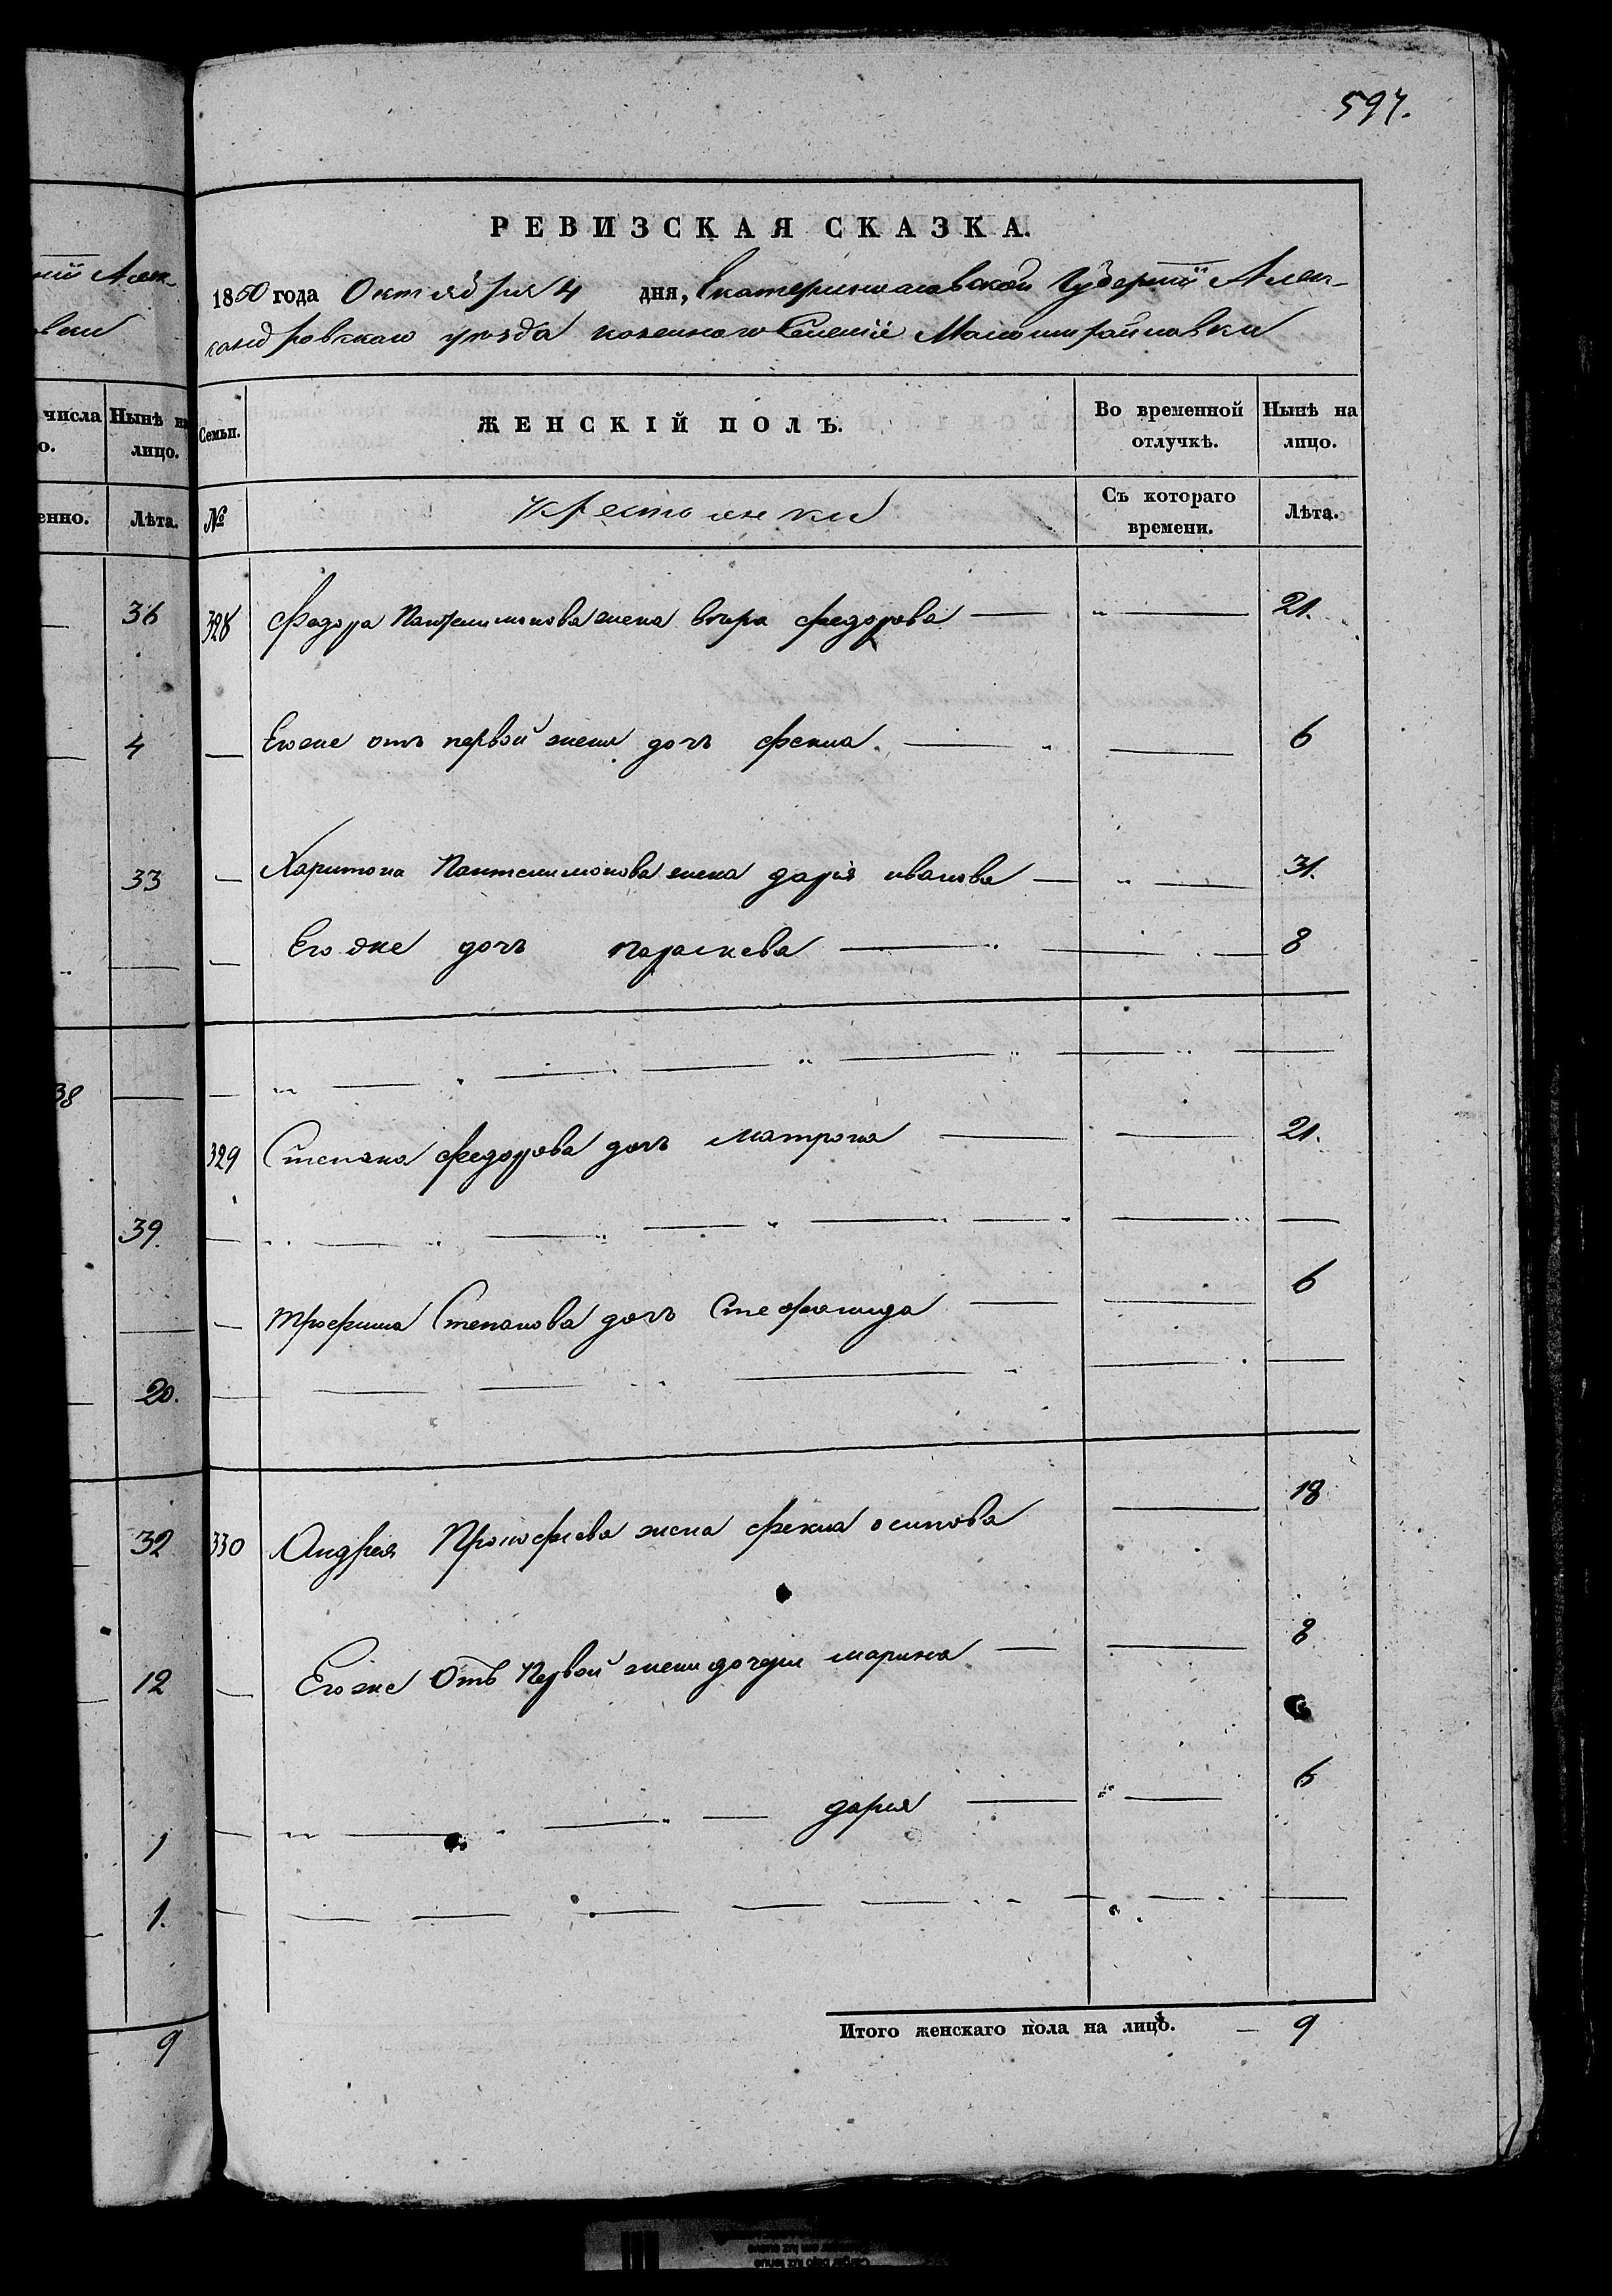 597.
РЕВИЗСКАЯ СКАЗКА.
1850 года Октября 4 дня, Екатеринославской Губернiи Алек-
сандровскаго уѣзда казеннаго Селенiя
числа
Нынѣ на лицо.
Семьи.
ЖЕНСКІЙ ПОЛЪ.
Во временной отлучкѣ.
Нынѣ на лицо.
Лѣта.
№
крестьянки
Съ котораго времени.
Лѣта.
36
328 Федора Пантелимонова жена вѣра федорова — „ — 21.
4
— Егоже отъ первой жены дочь фекла — „ — 6
33
— Харитона Пантелимонова жена дарiя иванова — „ — 31.
— Его же дочь параскева — 8
38
329 Степана федорова дочь матрона — — 21.
39.
— трофима Степанова дочь Стефанида — — 6
20.
32
330 Андрея Прокофiева жена фекла осипова — 18
12
— Егоже Отъ Первой жены дочери марина — — 8
1
— „ — „ — „ — дарiя — „ — 6
1.
9
Итого женскаго пола на лицо. — 9